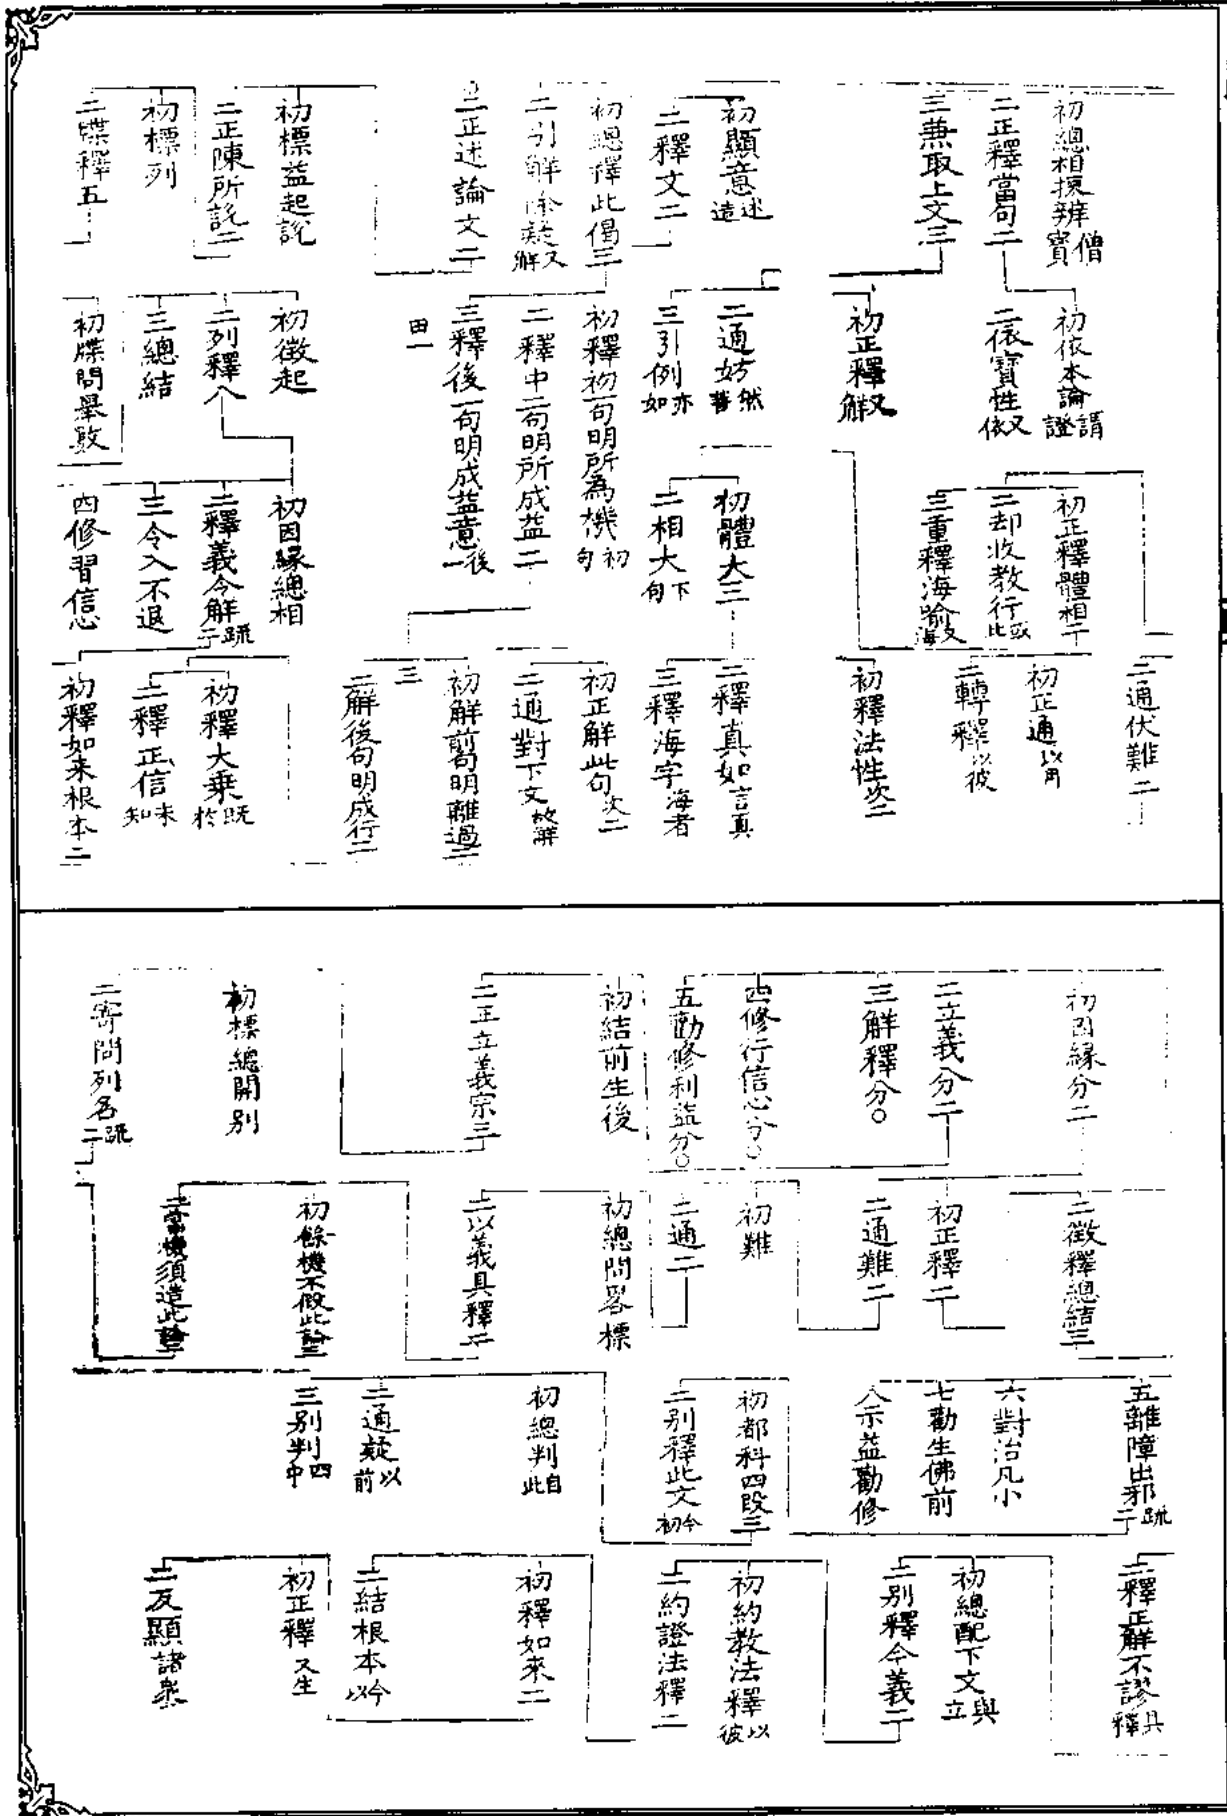 初總相揀辨僧寶
二正釋當句二
三兼取上文三
初顯意述造
二釋文二
初總釋此偈三
二引解除疑又解
二正述論文二
初標益起說
二正陳所說二
初標列
二牒釋五
初依本論謂證
二依寶性又依
初正釋又解
二通妨然菩
三引例亦如
初釋初一句明所為機初句
二釋中二句明所成益二
三釋後一句明成益意後一
田一
初徵起
二列釋八
三總結
初牒問舉數
初正釋體相二
二却收教行或比
三重釋海喻又海
初體大三
二相大下句
初因緣總相
二釋義令解疏二
三令入不退
四修習信心
二通伏難二
初正通以用
二轉釋以彼
初釋法性次二
二釋真如言真
三釋海字海者
初正解此句次二
二通對下文故解
三
初解前句明離過二
二解後句明成行二
初釋大乘既於
二釋正信未知
初釋如來根本二
初因緣分二
二立義分二
三解釋分○
四修行信心分○
五勸修利益分○
初結前生後
二正立義宗三
初標總開別
二寄問列名疏二
二徵釋總結三
初正釋二
二通難二
初難
二通二
初總問畧標
二以義具釋二
初餘機不假此論三
二當機須造此論三
五離障出邪疏二
六對治凡小
七勸生佛前
八示益勸修
初都科四段三
二別釋此文今初
初總判自此
二通疑以前
三別判四中
二釋正解不謬具釋
初總配下文與立
二別釋今義二
初約教法釋以彼
二約證法釋二
初釋如來二
二結根本今以
初正釋又生
二反顯諸衆